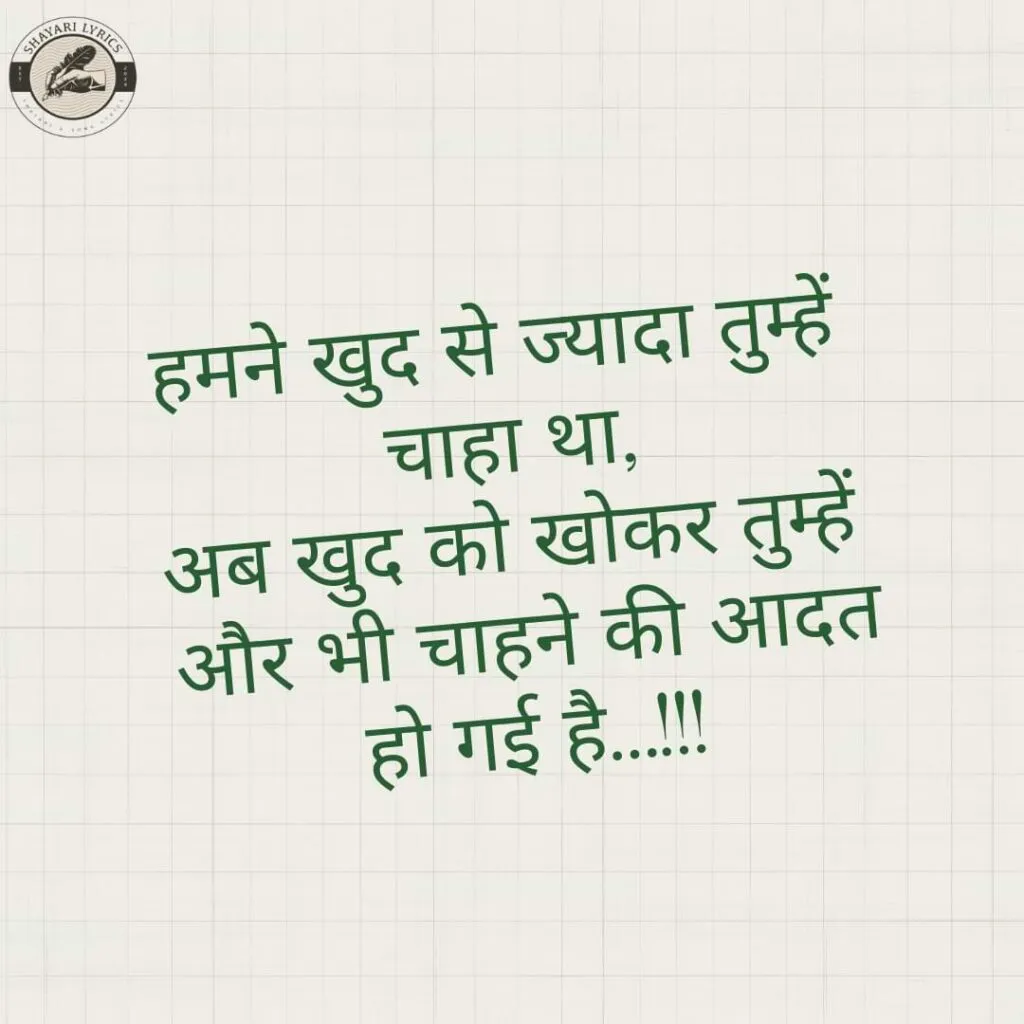 SHAYARI LYRICS
हमने खुद से ज्यादा तुम्हें
चाहा था,
अब खुद को खोकर तुम्हें
और भी चाहने की आदत
हो गई है...!!!